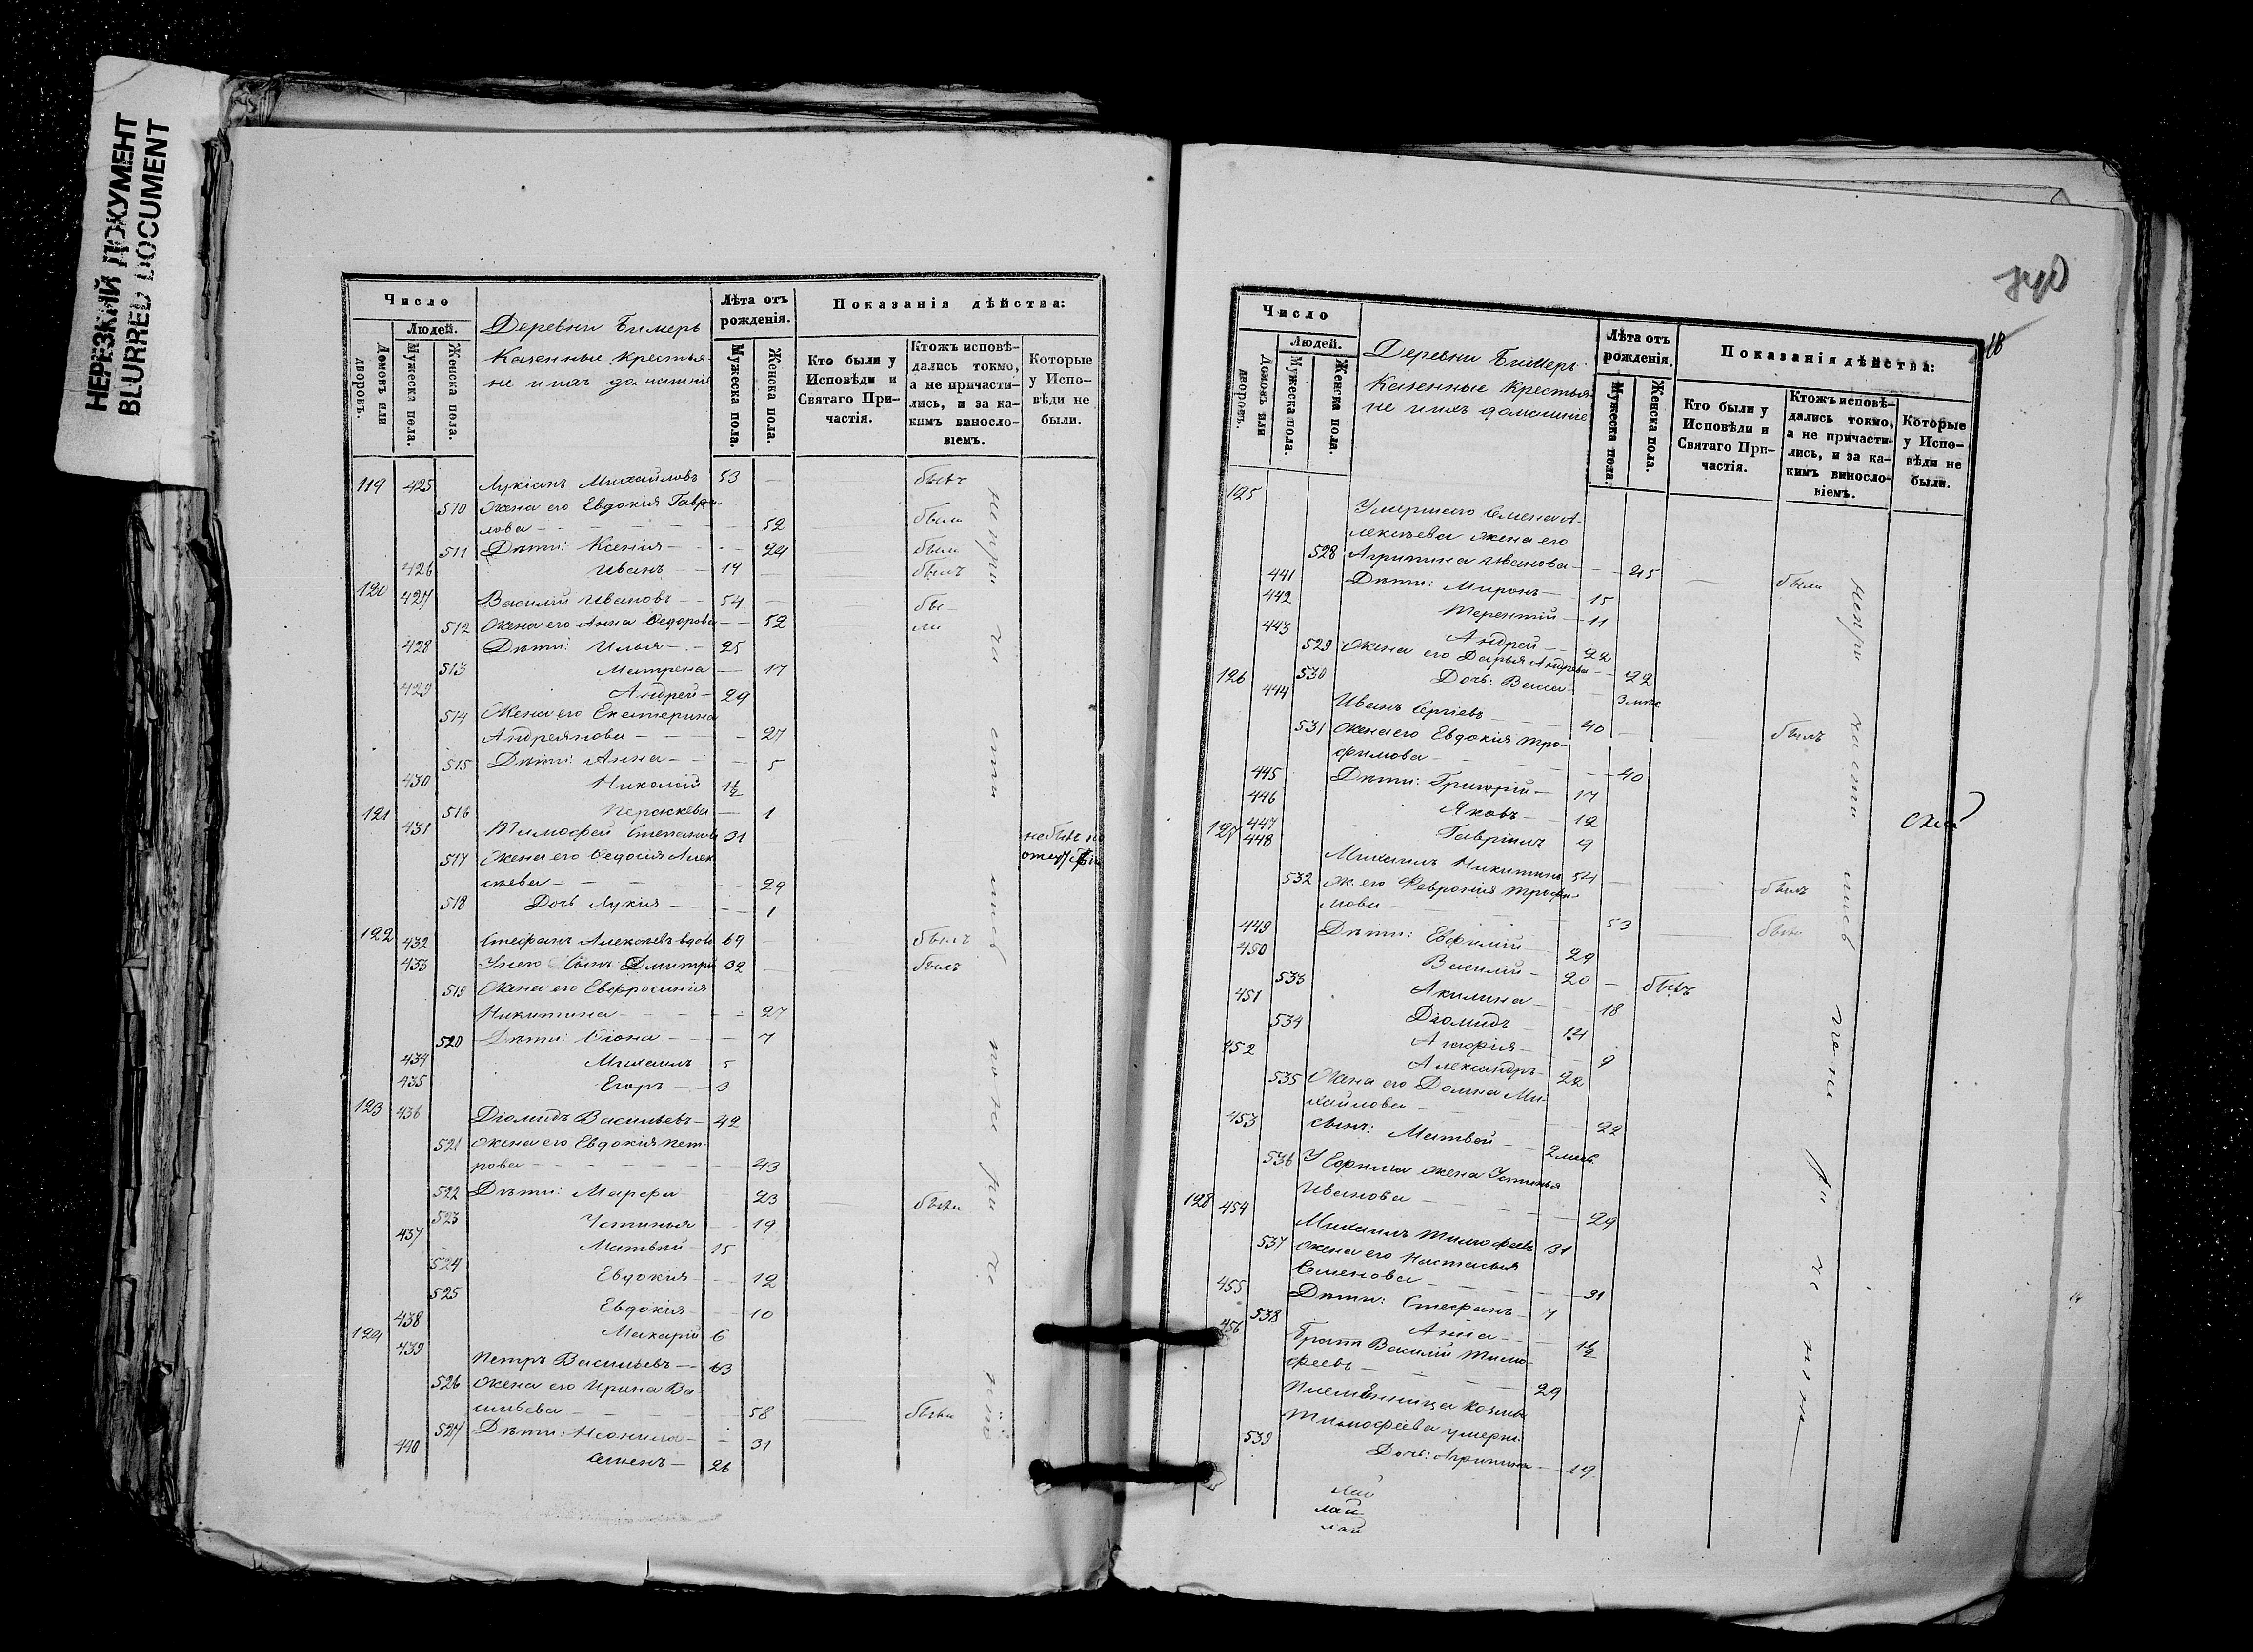 НЕРЕЗКИЙ ДОКУМЕНТ
BLURRED DOCUMENT
Число
Людей.
Домовъ или дворовъ.
Мужеска пола.
Женска пола.
Деревни Бимерь
Казенные крестья-
не и ихъ домашніе
Лѣта отъ рожденія.
Мужеска пола.
Женска пола.
Показанія дѣйства:
Кто были у Исповѣди и Святаго Причастія.
Ктожъ исповѣ-
дались токмо,
а не причасти-
лись, и за ка-
кимъ винosло-
віемъ.
Которые
у Испо-
вѣди не
были.
119 425 Лукіанъ Михайловъ 53 — былъ
510 Жена его Евдокія Гаври-
лова — 52 была
511 Дѣти: Ксенія — 24 была
426 Иванъ — 14 — былъ
120 427 Василій Ивановъ — 54 — бы-
512 Жена его Анна Ѳедорова — 52 ли
428 Дѣти: Илья — 25
513 Матрена — 17
429 Андрей — 29
514 Жена его Екатерина
Андреянова — 27
515 Дѣти: Анна — 5
430 Николай 1½
516 Параскева — 1
121 431 Тимофей Степановъ 31
517 Жена его Ѳедосія Алек
сѣева — 29
518 Дочь Лукія — 1
122 432 Стефанъ Алексѣевъ вдовъ 69 — былъ
433 У него Сынъ Дмитрій 32 — былъ
519 Жена его Евфросинія
Никитина — 27
520 Дѣти: — 7
434 Михаилъ 5
435 Егоръ — 3
123 436 Діомидъ Васильевъ — 42
521 Жена его Евдокія Пет-
рова — 43
522 Дѣти: Марфа 23 были
523 Устинья — 19
437 Матвей — 15
524 Евдокія — 12
525 Евдокія — 10
438 Макарій 6
124 439 Петръ Васильевъ — 63
526 Жена его Ирина Ва
сильева — 58 были
527 Дѣти: Неонила — 31
440 Семенъ — 26
Число
Людей.
Домовъ или дворовъ.
Мужеска пола.
Женска пола.
Деревни Бимерь
Казенные Крестья-
не и ихъ домашніе
Лѣта отъ рожденія.
Мужеска пола.
Женска пола.
Показанія дѣйства:
Кто были у
Исповѣди и
Святаго При-
частія.
Ктожъ исповѣ-
дались токмо,
а не причасти-
лись, и за ка-
кимъ винosло-
віемъ.
Которые
у Испо-
вѣди не
были.
125 Умершаго Семена А-
лексѣева жена его
528 Агрипина Иванова — 45 — были
441 Дѣти: Миронъ — 15
442 Терентій — 11
443 Андрей — 22
529 Жена его Дарья Андреева — 22
530 Дочь: Васса — 3 мѣс.
126 444 Иванъ Сергіевъ 40 — былъ
531 Жена его Евдокія Тро-
фимова — 40
445 Дѣти: Григорій — 17
446 Яковъ — 12
447 Гавріилъ 9
127 448 Михаилъ Никитинъ 54 — былъ
532 Ж. его Февронія Трофи-
мова — 53 была
449 Дѣти: Евфимій 29
450 Василій — 20 — былъ
533 Акилина — 18
451 Діомидъ — 14
534 — 9
452 Александръ — 22
535 Жена его Домна Ми-
хайлова — 22
453 Сынъ: Матвей — 2 мѣс.
536 У Ефимія жена Устинья
Иванова — 29
128 454 Михаилъ Тимофеевъ 31
537 Жена его Настасья
Семенова — 31
455 Дѣти: Стефанъ — 7
538 Анна — 1½
456 Братъ Василій Тимо-
феевъ — 29
Племянница
Тимофеева умерш.
539 Дочь: Агрипина — 19